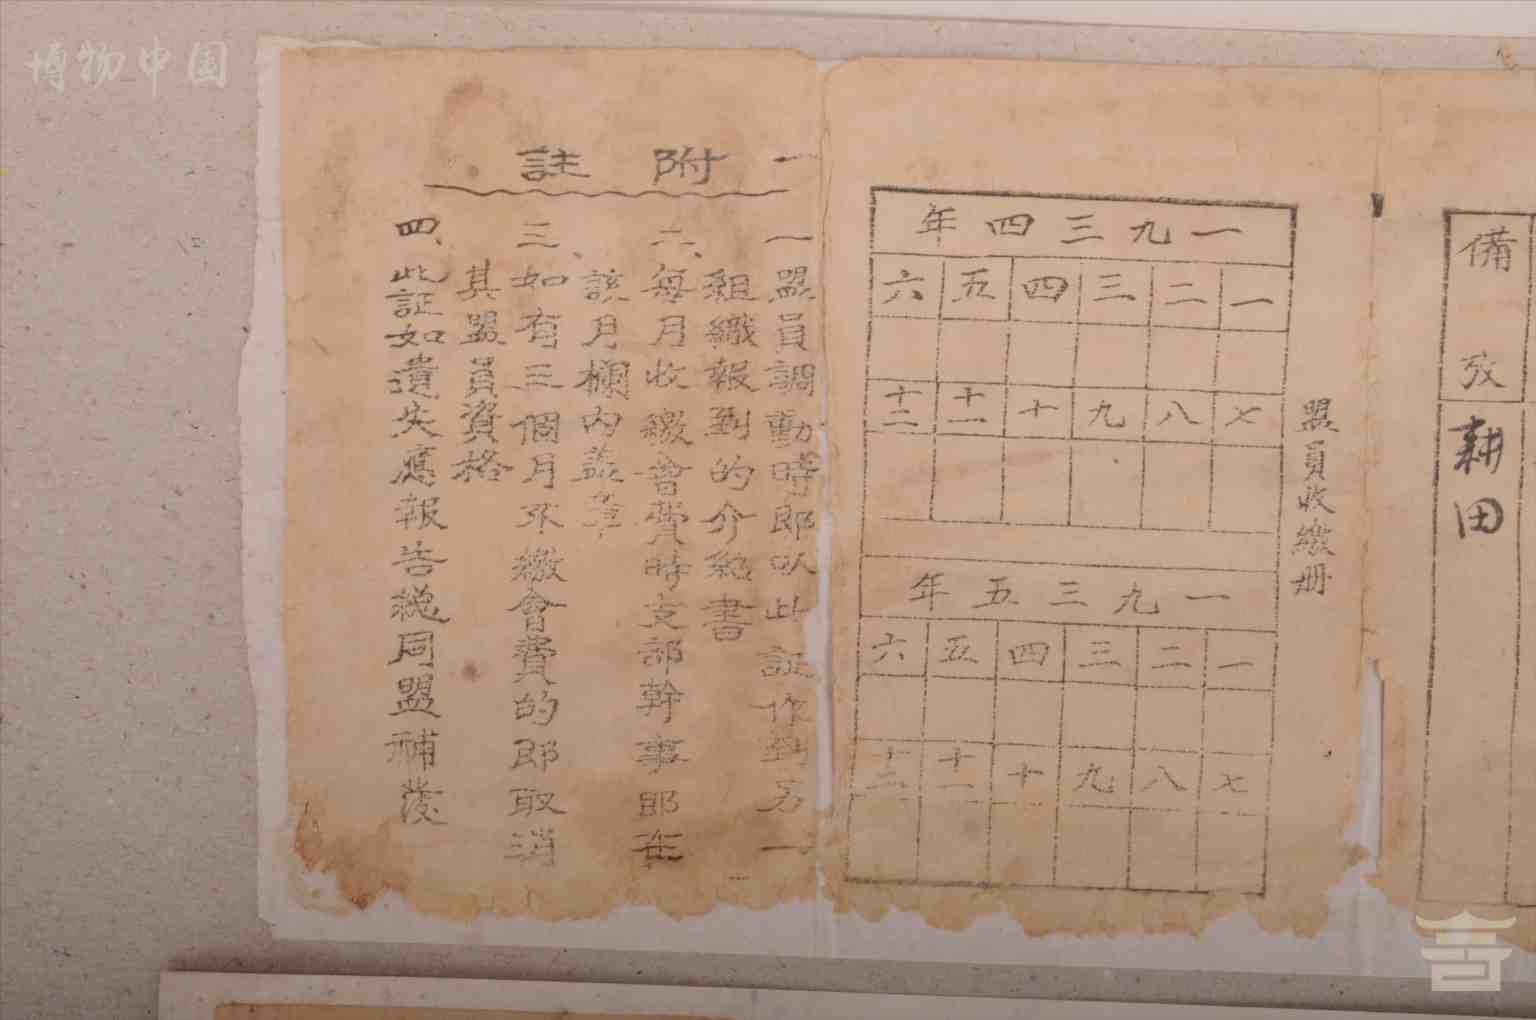 博物中国
備攷
耕田
盟員收繳册
一九三四年
一 二 三 四 五 六
七 八 九 十 十一 十二
一九三五年
一 二 三 四 五 六
七 八 九 十 十一 十二
附註
一盟員調動時即以此証作到另一
組織報到的介紹書
二、每月收繳會費時支部幹事即在
該月欄内蓋章
三、如有三個月不繳會費的即取消
其盟員資格
四、此証如遺失應報告總同盟補發